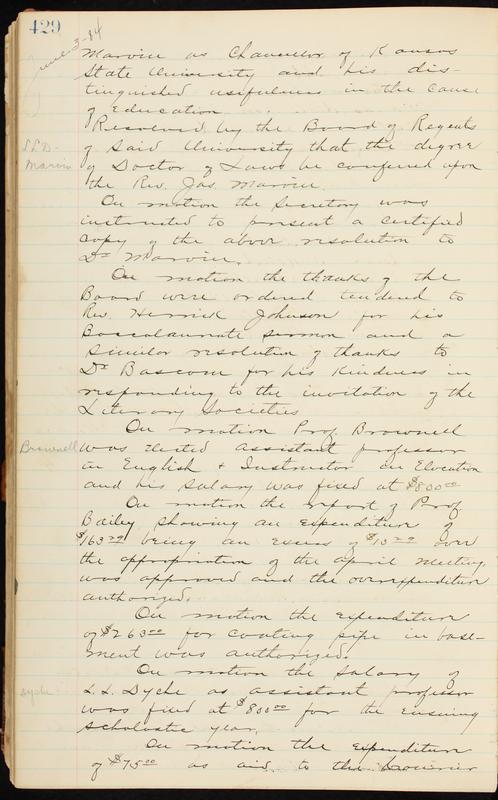 429
June 3-84
Marvin as Chancellor of Kansas
State University and his dis-
tinguished usefulness in the cause
of Education
Resolved by the Board of Regents
LLD.
of said University that the degree
Marvin
of Doctor of Laws be conferred upon
the Rev. Jas. Marvin.
On motion the Secretary was
instructed to present a certified
copy of the above resolution to
Dr Marvin.
On motion the thanks of the
Board were ordered tendered to
Rev. Herrick Johnson for his
Baccalaureate sermon and a
similar resolution of thanks to
Dr Bascom for his kindness in
responding to the invitation of the
Literary Societies
On motion Prof. Brownell
Brownell
was elected assistant professor
in English & Instructor in Elocution
and his salary was fixed at $800.00
On motion the report of Prof
Bailey showing an expenditure of
being an excess of over
the appropriation of the April meeting,
was approved and the overexpenditure
authorized.
On motion the expenditure
of $263.00 for coating pipe in base-
ment was authorized.
On motion the salary of
Dyche
L. L. Dyche as assistant professor
was fixed at $800.00 for the ensuing
scholastic year.
On motion the expenditure
of $75.00 as aid to the Courier